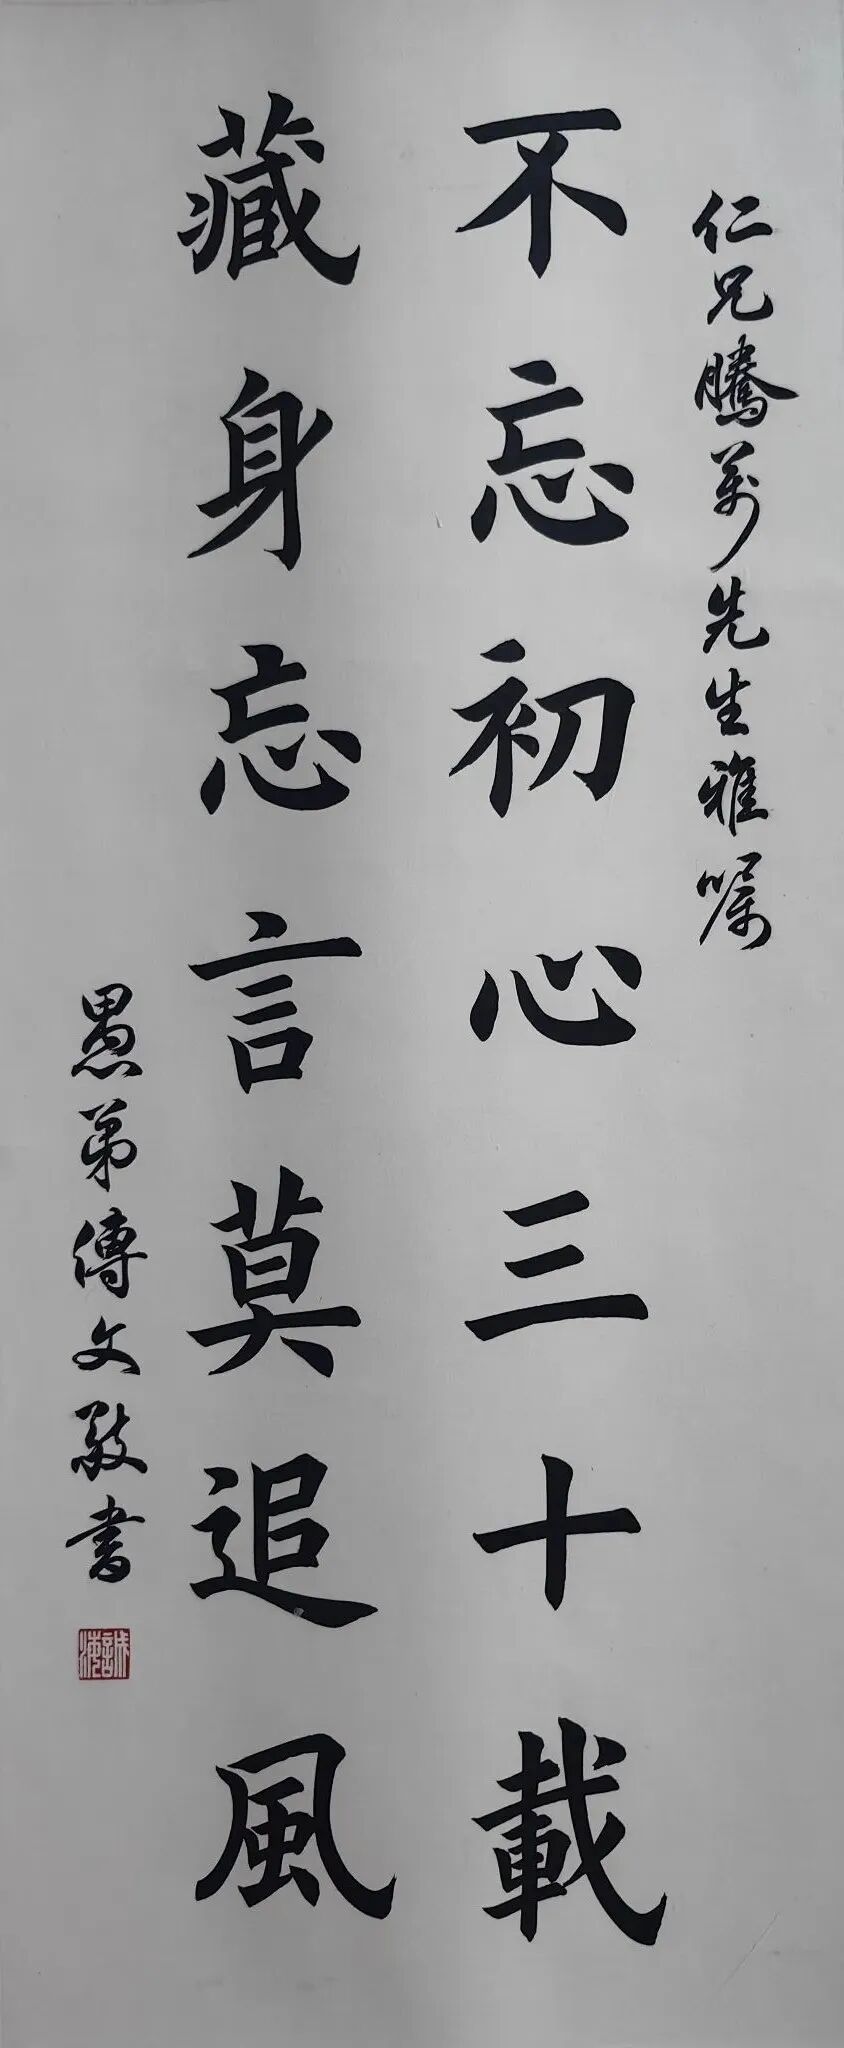 仁兄騰萬先生雅嘱
不忘初心三十載
藏身忘言莫追風
愚弟傳文敬書